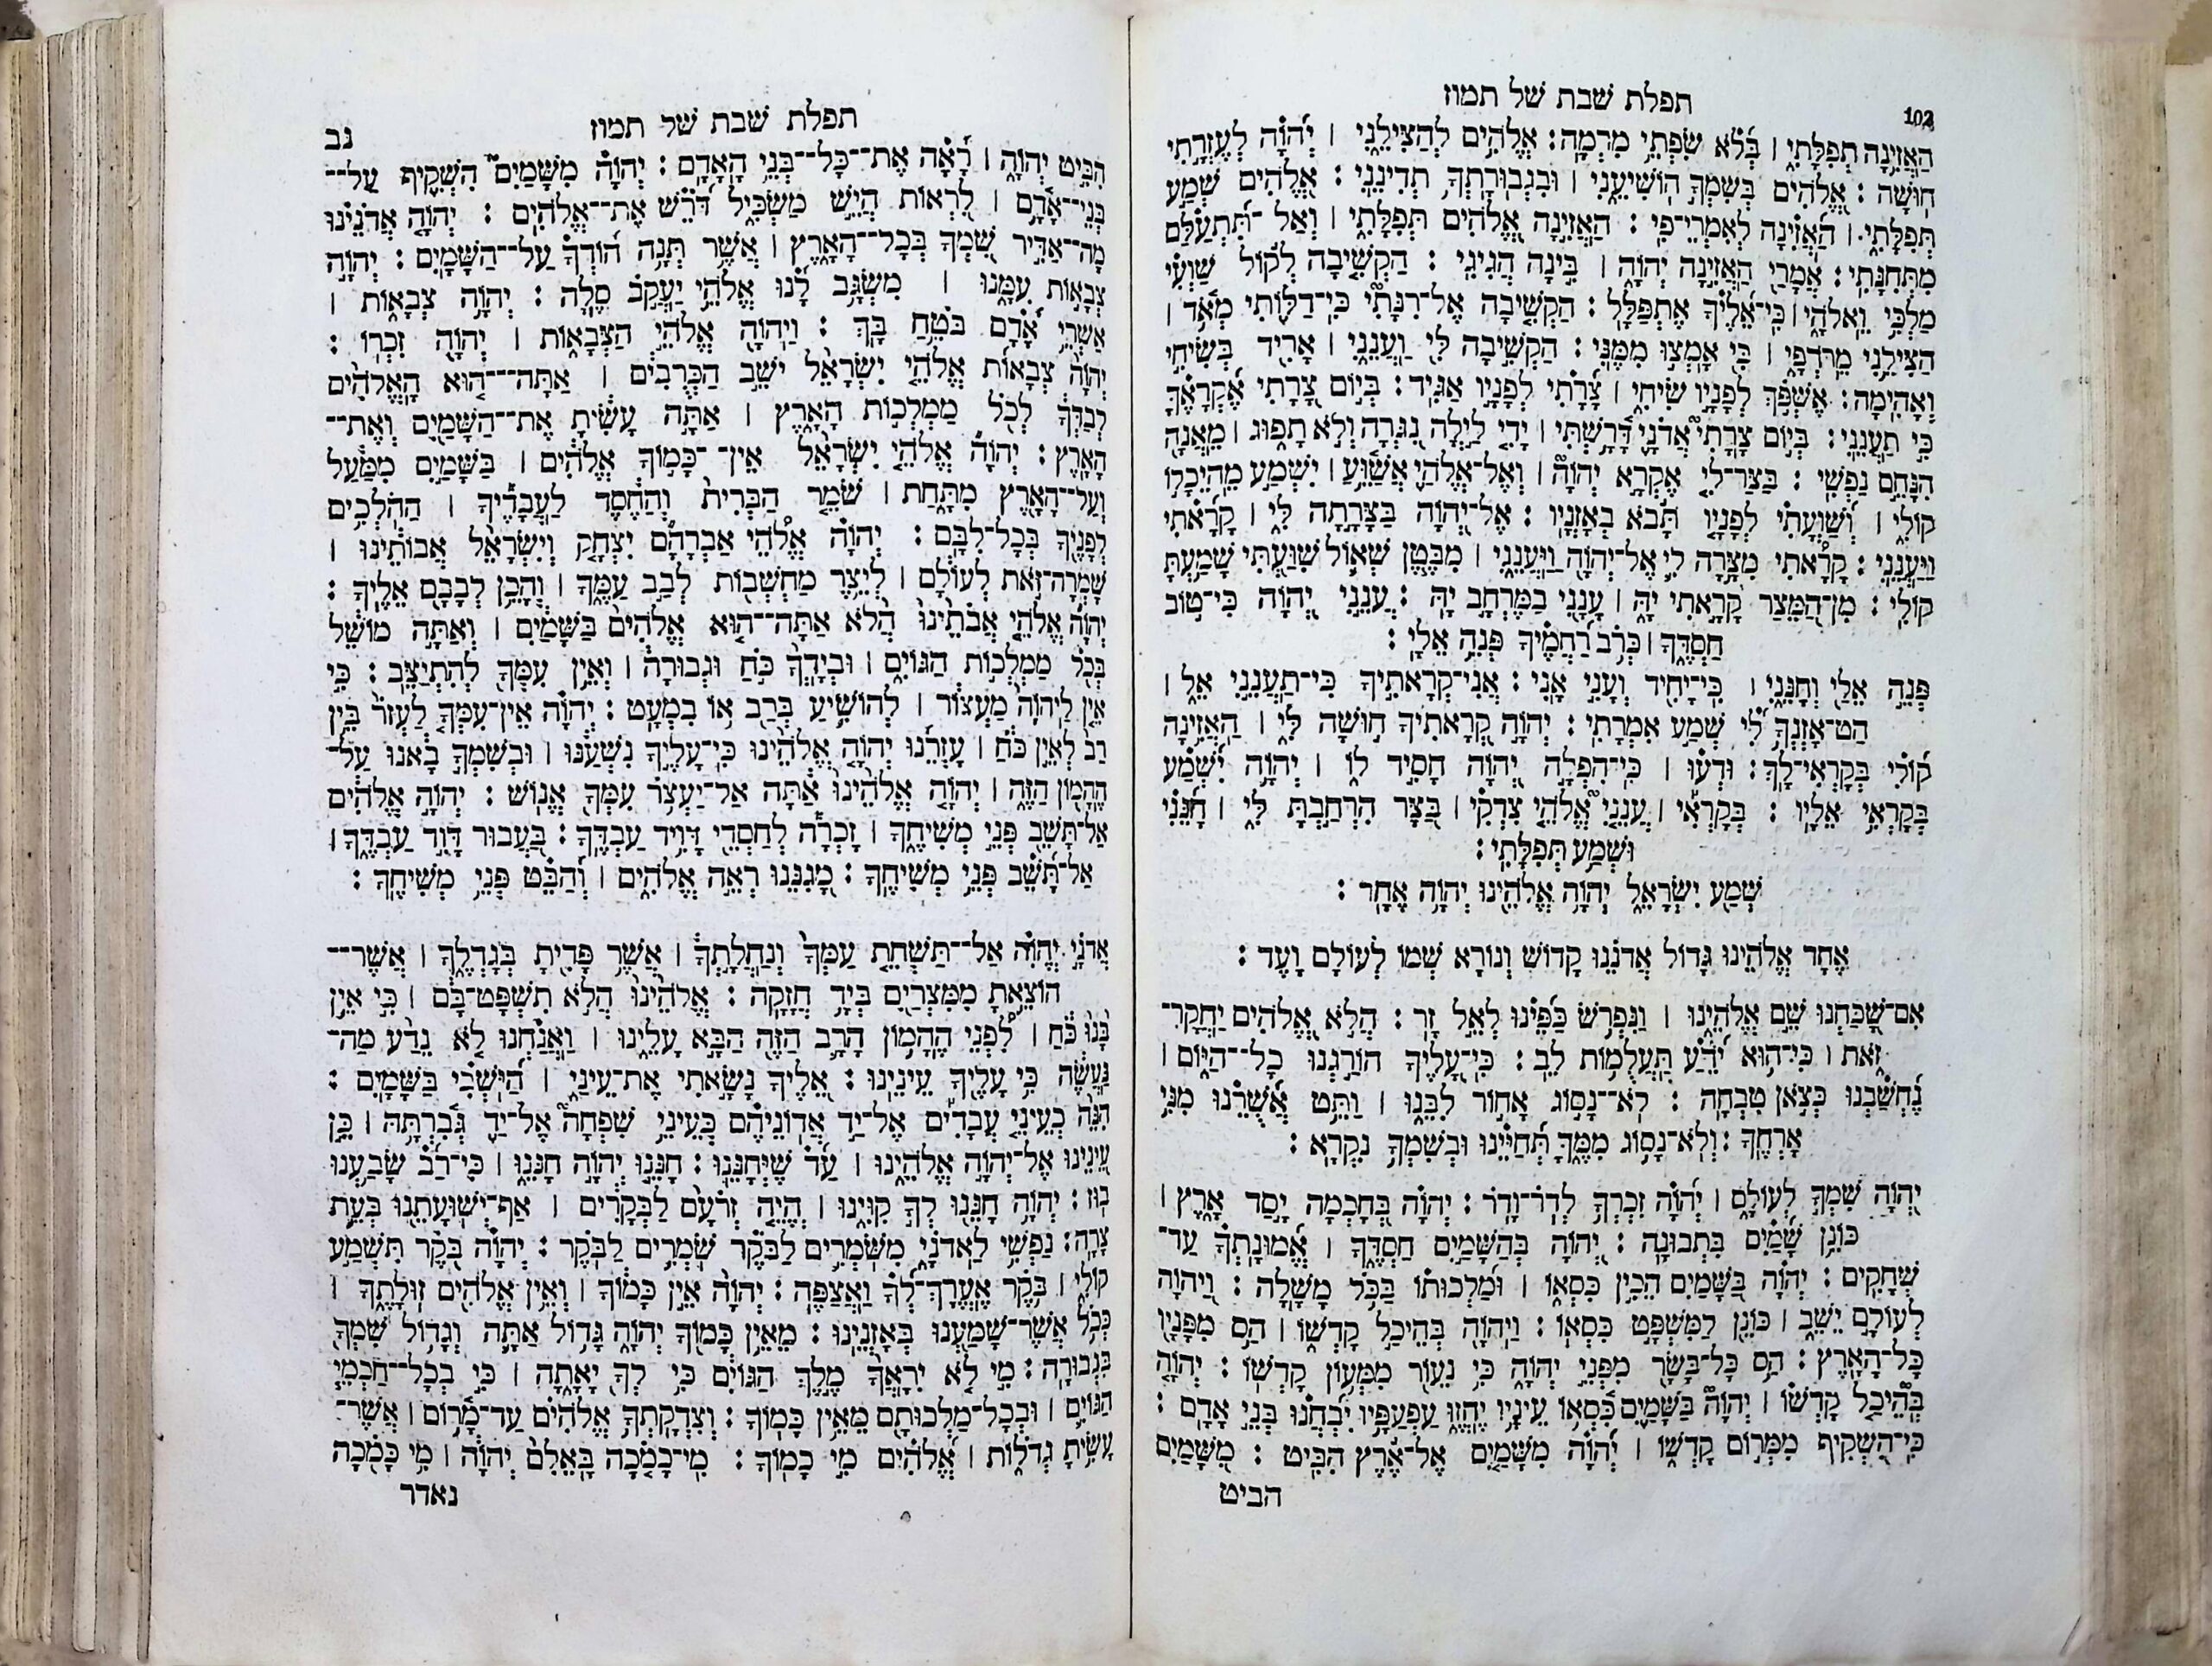 102
תפלת שבת של תמוז
הַאֲזִינָה תְפִלָּתִי ׀ בְּלֹא שִׂפְתֵי מִרְמָה : אֱלֹהִים לְהַצִּילֵנִי ׀ יְהוָֹה לְעֶזְרָתִי
חוּשָׁה : אֱלֹהִים בְּשִׁמְךָ הוֹשִׁיעֵנִי ׀ וּבִגְבוּרָתְךָ תְדִינֵנִי : אֱלֹהִים שְׁמַע
תְּפִלָּתִי ׀ הַאֲזִינָה לְאִמְרֵי־פִי : הַאֲזִינָה אֱלֹהִים תְּפִלָּתִי ׀ וְאַל־תִּתְעַלַּם
מִתְּחִנָּתִי : אֲמָרַי הַאֲזִינָה יְהוָֹה ׀ בִּינָה הֲגִיגִי : הַקְשִׁיבָה לְקוֹל שַׁוְעִי
מַלְכִּי וֵאלֹהָי ׀ כִּי־אֵלֶיךָ אֶתְפַּלָּל : הַקְשִׁיבָה אֶל־רִנָּתִי כִּי־דַלּוֹתִי מְאֹד ׀
הַצִּילֵנִי מֵרֹדְפַי ׀ כִּי אָמְצוּ מִמֶּנִּי : הַקְשִׁיבָה לִּי וַעֲנֵנִי ׀ אָרִיד בְּשִׂיחִי
וְאָהִימָה : אֶשְׁפֹּךְ לְפָנָיו שִׂיחִי ׀ צָרָתִי לְפָנָיו אַגִּיד : בְּיוֹם צָרָתִי אֶקְרָאֶךָּ
כִּי תַעֲנֵנִי : בְּיוֹם צָרָתִי אֲדֹנָי דָּרָשְׁתִּי ׀ יָדִי לַיְלָה נִגְּרָה וְלֹא תָפוּג ׀ מֵאֲנָה
הִנָּחֵם נַפְשִׁי : בַּצַּר־לִי אֶקְרָא יְהוָֹה ׀ וְאֶל־אֱלֹהַי אֲשַׁוֵּעַ ׀ יִשְׁמַע מֵהֵיכָלוֹ
קוֹלִי ׀ וְשַׁוְעָתִי לְפָנָיו תָּבֹא בְאָזְנָיו : אֶל־יְהוָֹה בַּצָּרָתָה לִּי ׀ קָרָאתִי
וַיַּעֲנֵנִי : קָרָאתִי מִצָּרָה לִי אֶל־יְהוָֹה וַיַּעֲנֵנִי ׀ מִבֶּטֶן שְׁאוֹל שִׁוַּעְתִּי שָׁמַעְתָּ
קוֹלִי : מִן־הַמֵּצַר קָרָאתִי יָּהּ ׀ עָנָנִי בַמֶּרְחָב יָהּ : עֲנֵנִי יְהוָֹה כִּי־טוֹב
חַסְדֶּךָ ׀ כְּרֹב רַחֲמֶיךָ פְּנֵה אֵלָי :
פְּנֵה אֵלַי וְחָנֵּנִי ׀ כִּי־יָחִיד וְעָנִי אָנִי : אֲנִי־קְרָאתִיךָ כִי־תַעֲנֵנִי אֵל ׀
הַט־אָזְנְךָ לִי שְׁמַע אִמְרָתִי : יְהוָֹה קְרָאתִיךָ חוּשָׁה לִּי ׀ הַאֲזִינָה
קוֹלִי בְּקָרְאִי־לָךְ : וּדְעוּ ׀ כִּי־הִפְלָה יְהוָֹה חָסִיד לוֹ ׀ יְהוָֹה יִשְׁמַע
בְּקָרְאִי אֵלָיו : בְּקָרְאִי ׀ עֲנֵנִי אֱלֹהֵי צִדְקִי ׀ בַּצָּר הִרְחַבְתָּ לִּי ׀ חָנֵּנִי
וּשְׁמַע תְּפִלָּתִי :
שְׁמַע יִשְׂרָאֵל יְהוָֹה אֱלֹהֵינוּ יְהוָֹה אֶחָד :
אֶחָד אֱלֹהֵינוּ גָּדוֹל אֲדֹנֵנוּ קָדוֹשׁ וְנוֹרָא שְׁמוֹ לְעוֹלָם וָעֶד :
אִם־שָׁכַחְנוּ שֵׁם אֱלֹהֵינוּ ׀ וַנִּפְרֹשׂ כַּפֵּינוּ לְאֵל זָר : הֲלֹא אֱלֹהִים יַחֲקָר־
זֹאת ׀ כִּי־הוּא יֹדֵעַ תַּעֲלֻמוֹת לֵב : כִּי־עָלֶיךָ הֹרַגְנוּ כָל־הַיּוֹם ׀
נֶחְשַׁבְנוּ כְּצֹאן טִבְחָה : לֹא־נָסוֹג אָחוֹר לִבֵּנוּ ׀ וַתֵּט אֲשֻׁרֵנוּ מִנִּי
אָרְחֶךָ : וְלֹא־נָסוֹג מִמֶּךָּ תְּחַיֵּינוּ וּבְשִׁמְךָ נִקְרָא :
יְהוָֹה שִׁמְךָ לְעוֹלָם ׀ יְהוָֹה זִכְרְךָ לְדֹר־וָדֹר : יְהוָֹה בְּחָכְמָה יָסַד אָרֶץ ׀
כּוֹנֵן שָׁמַיִם בִּתְבוּנָה : יְהוָֹה בְּהַשָּׁמַיִם חַסְדֶּךָ ׀ אֱמוּנָתְךָ עַד־
שְׁחָקִים : יְהוָֹה בַּשָּׁמַיִם הֵכִין כִּסְאוֹ ׀ וּמַלְכוּתוֹ בַּכֹּל מָשָׁלָה : וַיהוָֹה
לְעוֹלָם יֵשֵׁב ׀ כּוֹנֵן לַמִּשְׁפָּט כִּסְאוֹ : וַיהוָֹה בְּהֵיכַל קָדְשׁוֹ ׀ הַס מִפָּנָיו
כָּל־הָאָרֶץ : הַס כָּל־בָּשָׂר מִפְּנֵי יְהוָֹה כִּי נֵעוֹר מִמְּעוֹן קָדְשׁוֹ : יְהוָֹה
בְּהֵיכַל קָדְשׁוֹ ׀ יְהוָֹה בַּשָּׁמַיִם כִּסְאוֹ עֵינָיו יֶחֱזוּ עַפְעַפָּיו יִבְחֲנוּ בְּנֵי אָדָם :
כִּי־הִשְׁקִיף מִמְּרוֹם קָדְשׁוֹ ׀ יְהוָֹה מִשָּׁמַיִם אֶל־אֶרֶץ הִבִּיט : מִשָּׁמַיִם
הביט
תפלת שבת של תמוז
נב
הִבִּיט יְהוָֹה ׀ רָאָה אֶת־כָּל־בְּנֵי הָאָדָם : יְהוָֹה מִשָּׁמַיִם הִשְׁקִיף עַל־
בְּנֵי־אָדָם ׀ לִרְאוֹת הֲיֵשׁ מַשְׂכִּיל דֹּרֵשׁ אֶת־אֱלֹהִים : יְהוָֹה אֲדֹנֵינוּ
מָה־אַדִּיר שִׁמְךָ בְּכָל־הָאָרֶץ ׀ אֲשֶׁר תְּנָה הוֹדְךָ עַל־הַשָּׁמָיִם : יְהוָֹה
צְבָאוֹת עִמָּנוּ ׀ מִשְׂגָּב לָנוּ אֱלֹהֵי יַעֲקֹב סֶלָה : יְהוָֹה צְבָאוֹת ׀
אַשְׁרֵי אָדָם בֹּטֵחַ בָּךְ : וַיהוָֹה אֱלֹהֵי הַצְּבָאוֹת ׀ יְהוָֹה זִכְרוֹ :
יְהוָֹה צְבָאוֹת אֱלֹהֵי יִשְׂרָאֵל יֹשֵׁב הַכְּרֻבִים ׀ אַתָּה־הוּא הָאֱלֹהִים
לְבַדְּךָ לְכֹל מַמְלְכוֹת הָאָרֶץ ׀ אַתָּה עָשִׂיתָ אֶת־הַשָּׁמַיִם וְאֶת־
הָאָרֶץ : יְהוָֹה אֱלֹהֵי יִשְׂרָאֵל אֵין־כָּמוֹךָ אֱלֹהִים ׀ בַּשָּׁמַיִם מִמַּעַל
וְעַל־הָאָרֶץ מִתָּחַת ׀ שֹׁמֵר הַבְּרִית וְהַחֶסֶד לַעֲבָדֶיךָ ׀ הַהֹלְכִים
לְפָנֶיךָ בְּכָל־לִבָּם : יְהוָֹה אֱלֹהֵי אַבְרָהָם יִצְחָק וְיִשְׂרָאֵל אֲבוֹתֵינוּ ׀
שָׁמְרָה־זֹּאת לְעוֹלָם ׀ לְיֵצֶר מַחְשְׁבוֹת לְבַב עַמֶּךָ ׀ וְהָכֵן לְבָבָם אֵלֶיךָ :
יְהוָֹה אֱלֹהֵי אֲבֹתֵינוּ הֲלֹא אַתָּה־הוּא אֱלֹהִים בַּשָּׁמַיִם ׀ וְאַתָּה מוֹשֵׁל
בְּכֹל מַמְלְכוֹת הַגּוֹיִם ׀ וּבְיָדְךָ כֹּחַ וּגְבוּרָה ׀ וְאֵין עִמְּךָ לְהִתְיַצֵּב : כִּי
אֵין לַיהוָֹה מַעְצוֹר ׀ לְהוֹשִׁיעַ בְּרַב אוֹ בִמְעָט : יְהוָֹה אֵין־עִמְּךָ לַעְזֹר בֵּין
רַב לְאֵין כֹּחַ ׀ עָזְרֵנוּ יְהוָֹה אֱלֹהֵינוּ כִּי־עָלֶיךָ נִשְׁעַנּוּ ׀ וּבְשִׁמְךָ בָאנוּ עַל־
הֶהָמוֹן הַזֶּה ׀ יְהוָֹה אֱלֹהֵינוּ אַתָּה אַל־יַעְצֹר עִמְּךָ אֱנוֹשׁ : יְהוָֹה אֱלֹהִים
אַל־תָּשֵׁב פְּנֵי מְשִׁיחֶךָ ׀ זָכְרָה לְחַסְדֵי דָּוִיד עַבְדֶּךָ : בַּעֲבוּר דָּוִד עַבְדֶּךָ ׀
אַל־תָּשֵׁב פְּנֵי מְשִׁיחֶךָ : מָגִנֵּנוּ רְאֵה אֱלֹהִים ׀ וְהַבֵּט פְּנֵי מְשִׁיחֶךָ :
אֲדֹנָי יֱהוִֹה אַל־תַּשְׁחֵת עַמְּךָ וְנַחֲלָתְךָ ׀ אֲשֶׁר פָּדִיתָ בְּגָדְלֶךָ ׀ אֲשֶׁר־
הוֹצֵאתָ מִמִּצְרַיִם בְּיָד חֲזָקָה : אֱלֹהֵינוּ הֲלֹא תִשְׁפָּט־בָּם ׀ כִּי אֵין
בָּנוּ כֹּחַ ׀ לִפְנֵי הֶהָמוֹן הָרָב הַזֶּה הַבָּא עָלֵינוּ ׀ וַאֲנַחְנוּ לֹא נֵדַע מַה־
נַּעֲשֶׂה כִּי עָלֶיךָ עֵינֵינוּ : אֵלֶיךָ נָשָׂאתִי אֶת־עֵינַי ׀ הַיֹּשְׁבִי בַּשָּׁמָיִם :
הִנֵּה כְעֵינֵי עֲבָדִים אֶל־יַד אֲדוֹנֵיהֶם כְּעֵינֵי שִׁפְחָה אֶל־יַד גְּבִרְתָּהּ ׀ כֵּן
עֵינֵינוּ אֶל־יְהוָֹה אֱלֹהֵינוּ ׀ עַד שֶׁיְּחָנֵּנוּ : חָנֵּנוּ יְהוָֹה חָנֵּנוּ ׀ כִּי־רַב שָׂבַעְנוּ
בוּז : יְהוָֹה חָנֵּנוּ לְךָ קִוִּינוּ ׀ הֱיֵה זְרֹעָם לַבְּקָרִים ׀ אַף־יְשׁוּעָתֵנוּ בְּעֵת
צָרָה : נַפְשִׁי לַאדֹנָי מִשֹּׁמְרִים לַבֹּקֶר שֹׁמְרִים לַבֹּקֶר : יְהוָֹה בֹּקֶר תִּשְׁמַע
קוֹלִי ׀ בֹּקֶר אֶעֱרָךְ־לְךָ וַאֲצַפֶּה : יְהוָֹה אֵין כָּמוֹךָ ׀ וְאֵין אֱלֹהִים זוּלָתֶךָ ׀
כְּכֹל אֲשֶׁר־שָׁמַעְנוּ בְּאָזְנֵינוּ : מֵאֵין כָּמוֹךָ יְהוָֹה גָּדוֹל אַתָּה וְגָדוֹל שִׁמְךָ
בִּגְבוּרָה : מִי לֹא יִרָאֲךָ מֶלֶךְ הַגּוֹיִם כִּי לְךָ יָאָתָה ׀ כִּי בְכָל־חַכְמֵי
הַגּוֹיִם ׀ וּבְכָל־מַלְכוּתָם מֵאֵין כָּמוֹךָ : וְצִדְקָתְךָ אֱלֹהִים עַד־מָרוֹם ׀ אֲשֶׁר־
עָשִׂיתָ גְדֹלוֹת ׀ אֱלֹהִים מִי כָמוֹךָ : מִי־כָמֹכָה בָּאֵלִם יְהוָֹה ׀ מִי כָּמֹכָה
נאדר